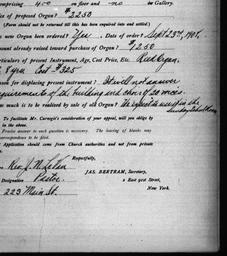 comprising 400 on floor and no Gallery.
of proposed Organ? $3250
(Form should not be returned till this has been inquired into and settled.)
new Organ been ordered? Yes Date of order; Sept 25th, 1901.
amount already raised toward purchase of Organ? $1250
Particulars of present Instrument, Age, Cost Price, Etc. Reed Organ,
Cost $325
for displacing present instrument? It will not answer
requirements of the building and choir of 20 voices.
much is to be realized by sale of old Organ?
To facilitate Mr. Carnegie's consideration of your appeal, will you oblige by
the above.
Precise answer to each question is necessary. The leaving of blanks may
correspondence to be filed.
Application should come from Church authorities and not from private
Respectfully,
Rev. J. N. LeVan
JAS. BERTRAM, Secretary,
Designation Pastor
2 East 91st Street,
223 Main St.
New York.